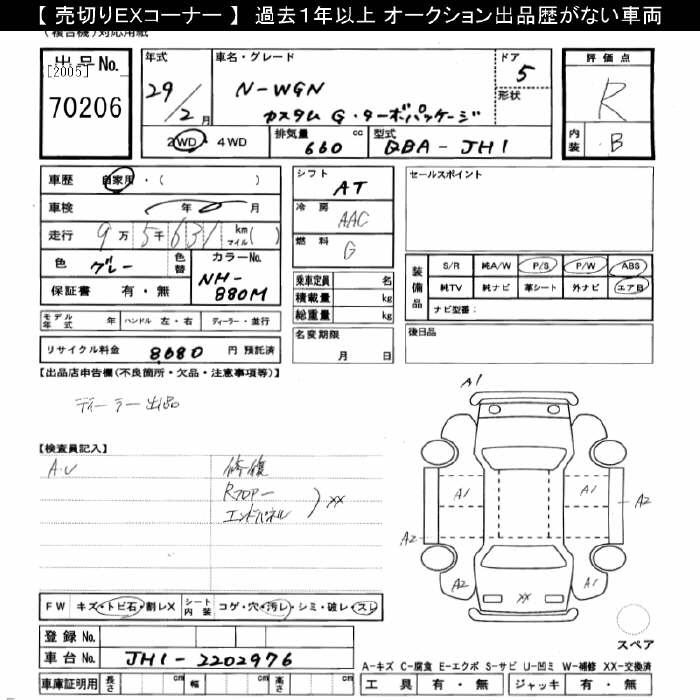 【 売切りEXコーナー 】 過去1年以上 オークション出品歴がない車両
(複合機)対応用紙
出品No.
[2005]
70206
年式
29/2月
車名・グレード
N-WGN
カスタム G・ターボパッケージ
ドア
5
形状
2WD・4WD
排気量 cc
660
型式
DBA-JH1
評価点
R
内装
B
車歴 自家用・( )
車検 年 月
走行 9万5千631 km マイル( )
色 グレー
色替
カラーNo.
NH-880M
保証書 有・無
シフト
AT
冷房
AAC
燃料
G
乗車定員 名
積載量 kg
総重量 kg
名変期限
月 日
セールスポイント
装備品
S/R 純A/W P/S P/W ABS
純TV 純ナビ 革シート 外ナビ エアB
ナビ型番:
後日品
モデル年式 年 ハンドル 左・右 ディーラー・並行
リサイクル料金 8680 円 預託済
【出品店申告欄(不良箇所・欠品・注意事項等)】
ディーラー出品
【検査員記入】
A.U
修復
Rフロアー
エンドパネル
XX
A1
A1 A1
A2 A2
A2 A1
XX
スペア
FW キズ・トビ石・割レX
シート内装 コゲ・穴・汚レ・シミ・破レ・スレ
登録No.
車台No. JH1-2202976
車庫証明用 長さ cm 幅 cm 高さ cm
A-キズ C-腐食 E-エクボ S-サビ U-凹ミ W-補修 XX-交換済
工具 有・無 ジャッキ 有・無